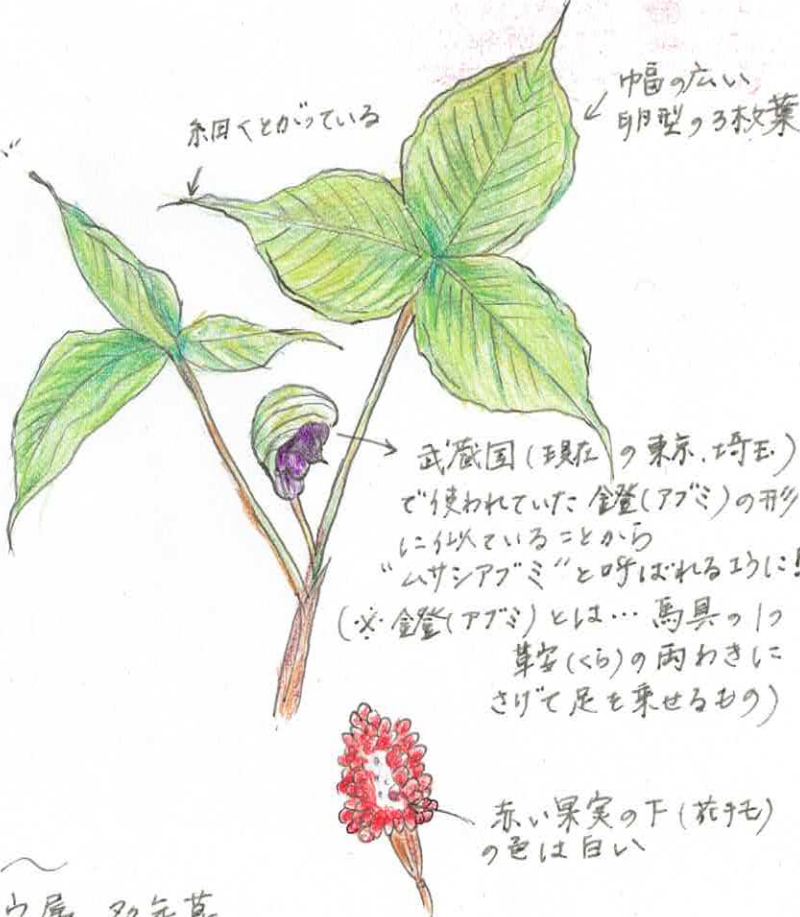 幅の広い
卵型の3枚葉
細くとがっている
武蔵国(現在の東京、埼玉)
で使われていた鐙(アブミ)の形
に似ていることから
"ムサシアブミ"と呼ばれるように!
(※鐙(アブミ)とは…馬具の1つ
鞍(くら)の両わきに
さげて足を乗せるもの)
赤い果実の下(花托)
の色は白い
属 多年草